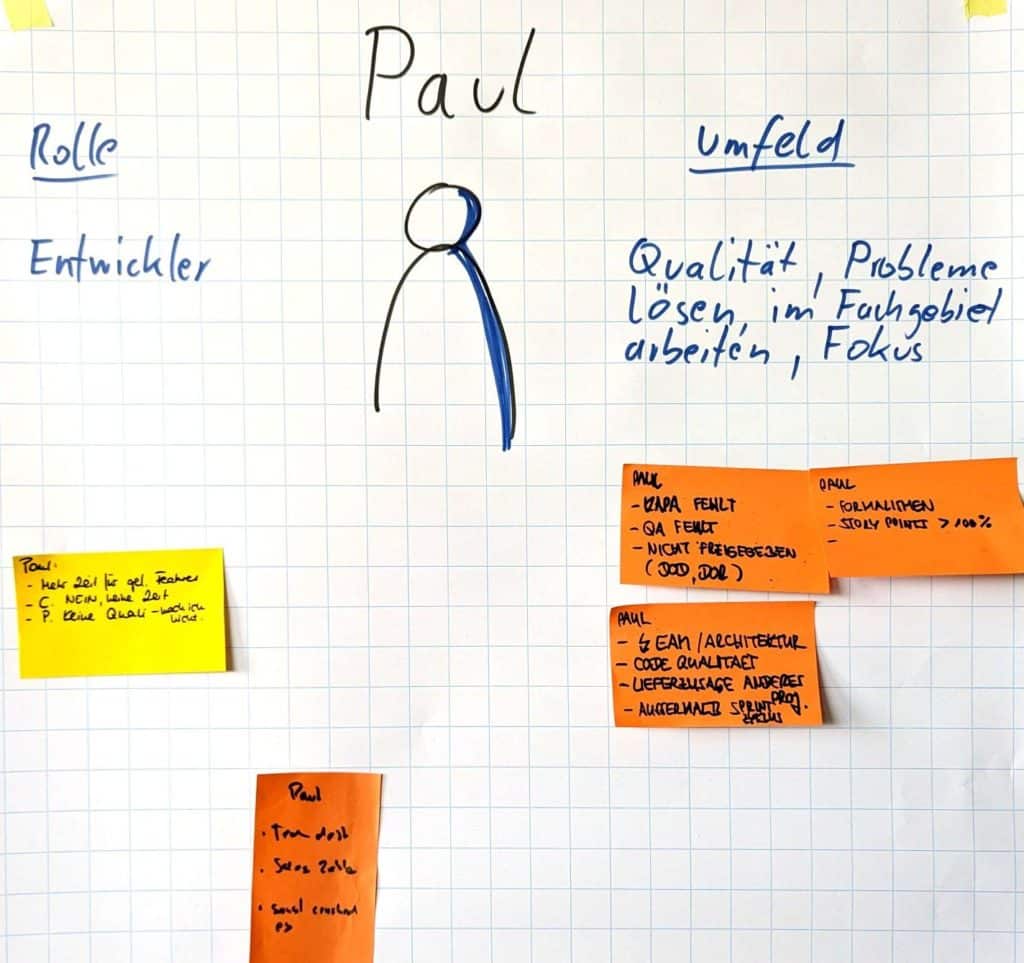 Paul
Rolle
Umfeld
Entwickler
Qualität, Probleme
lösen, im Fachgebiet
arbeiten, Fokus
PAUL
- KAPA FEHLT
- QA FEHLT
- NICHT FREIGEGEBEN
(DOD, DOR)
PAUL
- FORMALISMEN
- STORY POINTS > 100%
-
Paul:
- Mehr Zeit für gel. Features
- C. NEIN, keine Zeit
- P. keine Quali - mach ich
nicht.
PAUL
- ↯ EAM/ARCHITEKTUR
- CODE QUALITAET
- LIEFERZUSAGE ANDERES
PROJ.
- AUSSERHALB SPRINT
ZYKLUS
Paul
· Team
· Sales
· sonst crashed
es